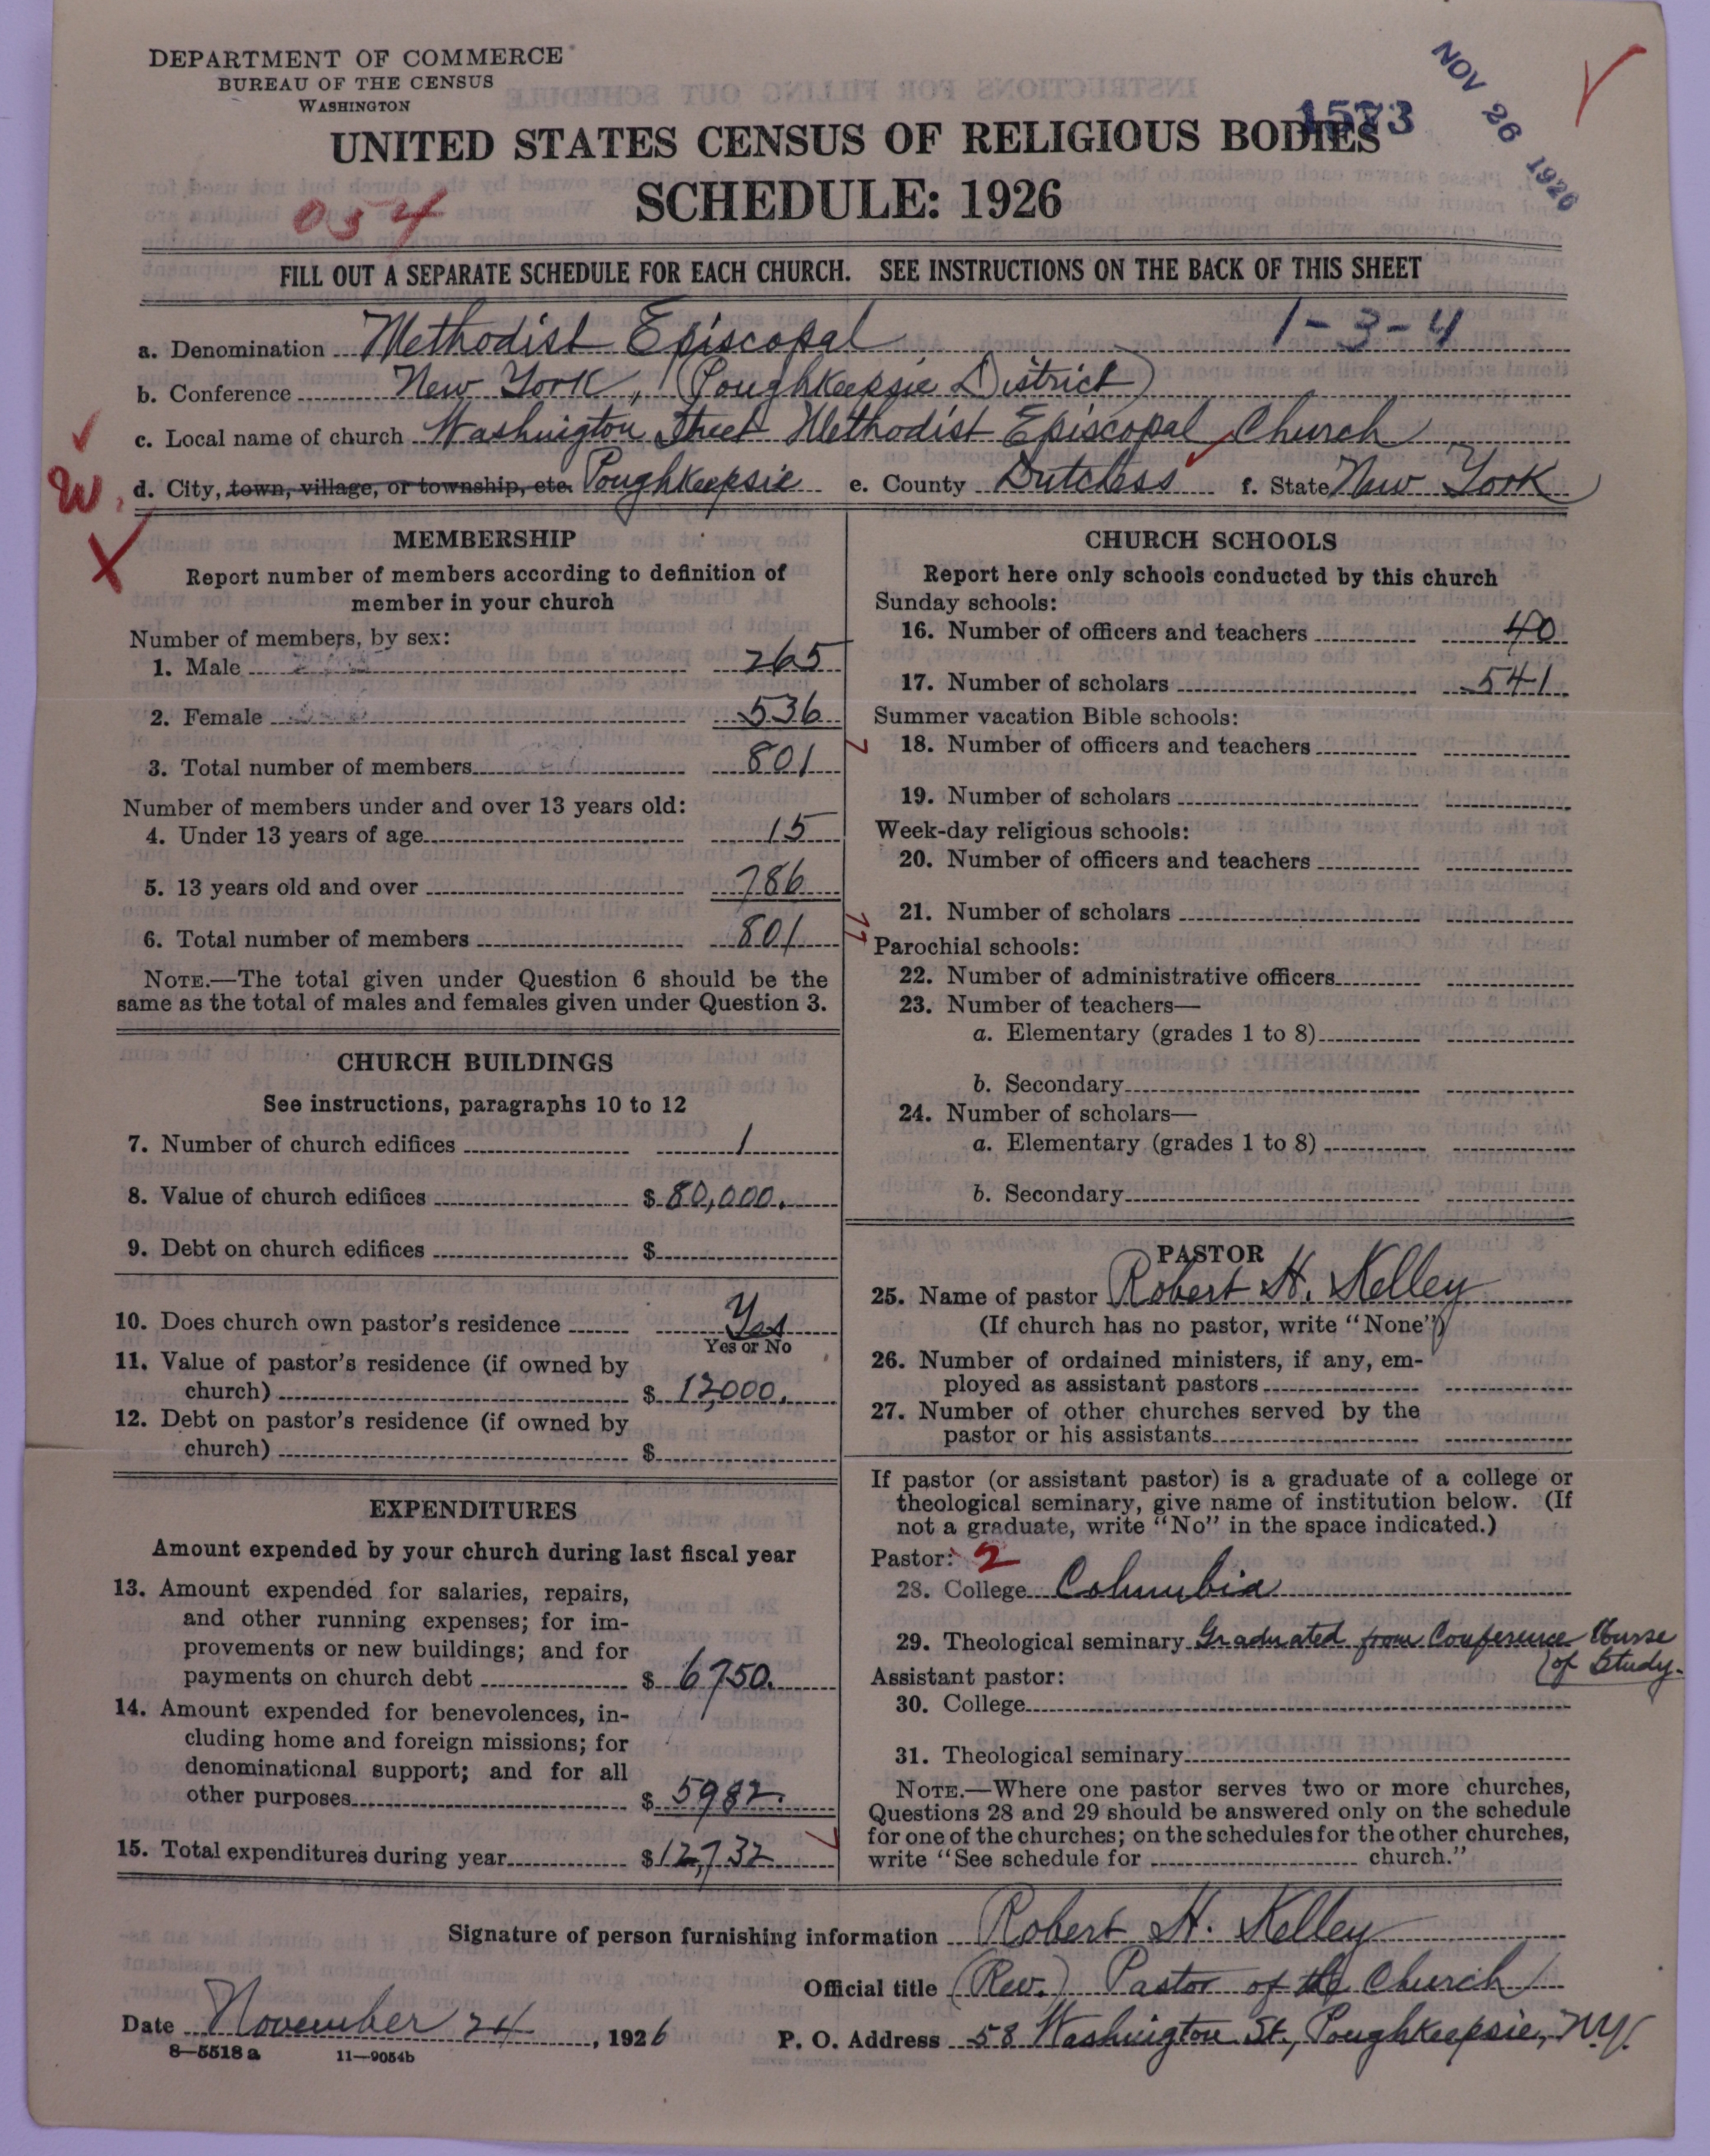 DEPARTMENT OF COMMERCE
BUREAU OF THE CENSUS
WASHINGTON
NOV 26 1926
1573
UNITED STATES CENSUS OF RELIGIOUS BODIES
SCHEDULE: 1926
054
FILL OUT A SEPARATE SCHEDULE FOR EACH CHURCH. SEE INSTRUCTIONS ON THE BACK OF THIS SHEET
a. Denomination Methodist Episcopal 1-3-4
b. Conference New York, (Poughkeepsie District)
c. Local name of church Washington Street Methodist Episcopal Church
W. d. City, town, village, or township, etc. Poughkeepsie e. County Dutchess f. State New York
MEMBERSHIP
Report number of members according to definition of
member in your church
Number of members, by sex:
1. Male 265
2. Female 536
3. Total number of members 801
Number of members under and over 13 years old:
4. Under 13 years of age 15
5. 13 years old and over 786
6. Total number of members 801
NOTE.—The total given under Question 6 should be the
same as the total of males and females given under Question 3.
CHURCH BUILDINGS
See instructions, paragraphs 10 to 12
7. Number of church edifices 1
8. Value of church edifices $ 80,000.
9. Debt on church edifices $
10. Does church own pastor's residence Yes
Yes or No
11. Value of pastor's residence (if owned by
church) $ 12,000.
12. Debt on pastor's residence (if owned by
church) $
EXPENDITURES
Amount expended by your church during last fiscal year
13. Amount expended for salaries, repairs,
and other running expenses; for im-
provements or new buildings; and for
payments on church debt $ 6750.
14. Amount expended for benevolences, in-
cluding home and foreign missions; for
denominational support; and for all
other purposes $ 5982.
15. Total expenditures during year $ 12,732
CHURCH SCHOOLS
Report here only schools conducted by this church
Sunday schools:
16. Number of officers and teachers 40
17. Number of scholars 541
Summer vacation Bible schools:
18. Number of officers and teachers
19. Number of scholars
Week-day religious schools:
20. Number of officers and teachers
21. Number of scholars
Parochial schools:
22. Number of administrative officers
23. Number of teachers—
a. Elementary (grades 1 to 8)
b. Secondary
24. Number of scholars—
a. Elementary (grades 1 to 8)
b. Secondary
PASTOR
25. Name of pastor Robert H. Kelley
(If church has no pastor, write "None")
26. Number of ordained ministers, if any, em-
ployed as assistant pastors
27. Number of other churches served by the
pastor or his assistants
If pastor (or assistant pastor) is a graduate of a college or
theological seminary, give name of institution below. (If
not a graduate, write "No" in the space indicated.)
Pastor: 2
28. College Columbia
29. Theological seminary Graduated from Conference Course
of Study.
Assistant pastor:
30. College
31. Theological seminary
NOTE.—Where one pastor serves two or more churches,
Questions 28 and 29 should be answered only on the schedule
for one of the churches; on the schedules for the other churches,
write "See schedule for church."
Signature of person furnishing information Robert H. Kelley
Official title (Rev.) Pastor of the Church
Date November 24, 1926 P. O. Address 58 Washington St., Poughkeepsie, N.Y.
8—5518 a 11—9054b